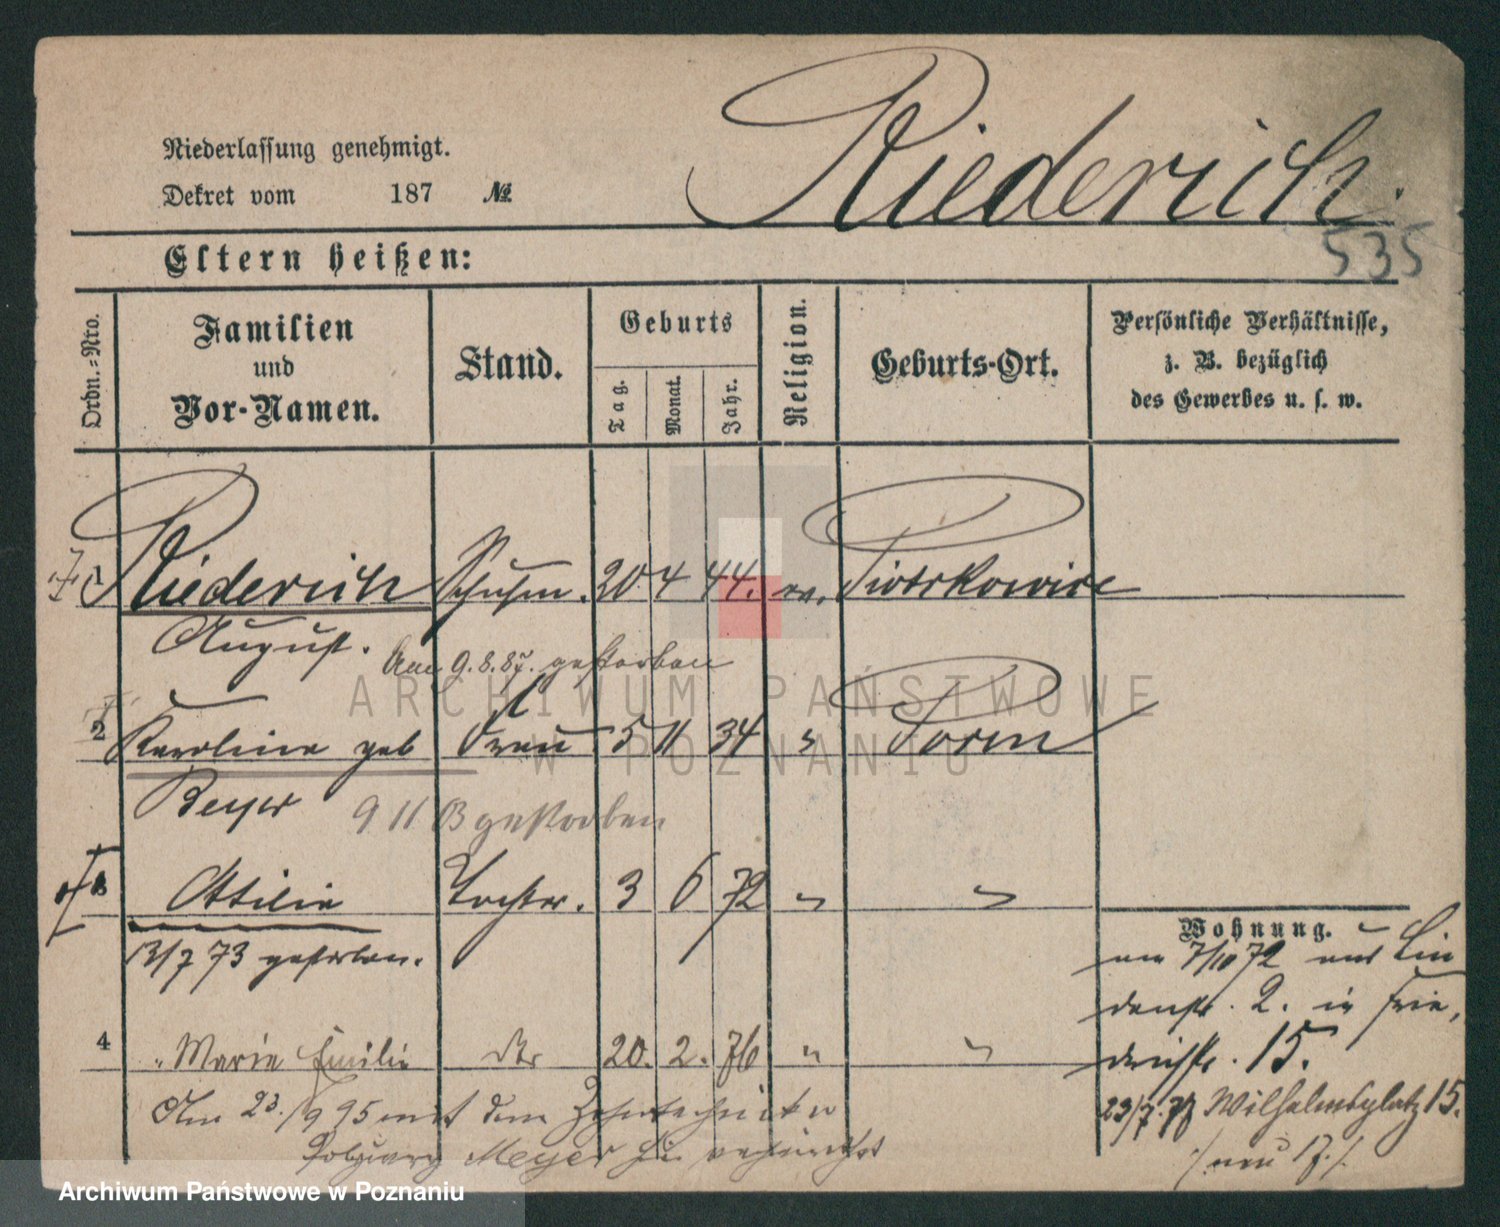 Riederich.
Niederlassung genehmigt.
Dekret vom 187 №
535
Eltern heißen:
Ordn.-Nro.
Familien und Vor-Namen.
Stand.
Geburts
Tag.
Monat.
Jahr.
Religion.
Geburts-Ort.
Persönliche Verhältnisse,
z. B. bezüglich
des Gewerbes u. s. w.
1 Riederich Schuhm. 20 4 44. ev. Piotrkowice
August. Am 9.8.87. gestorben
2 Karoline geb Frau 5 11 34 " Posen
Beyer 9 11 13 gestorben
3 Ottilie Tochter. 3 6 72 " "
13/7 73 gestorben.
4 " Marie Emilie dto 20. 2. 76 " "
Am 23./9 95 mit dem Zahntechniker
Meyer hier
Wohnung.
am 7/10 72 aus Lin
denstr. 2. in Frie,
drichstr. 15.
23/7. 77 Wilhelmsplatz 15.
/ neu 17. /.
ARCHIWUM PAŃSTWOWE
W POZNANIU
Archiwum Państwowe w Poznaniu